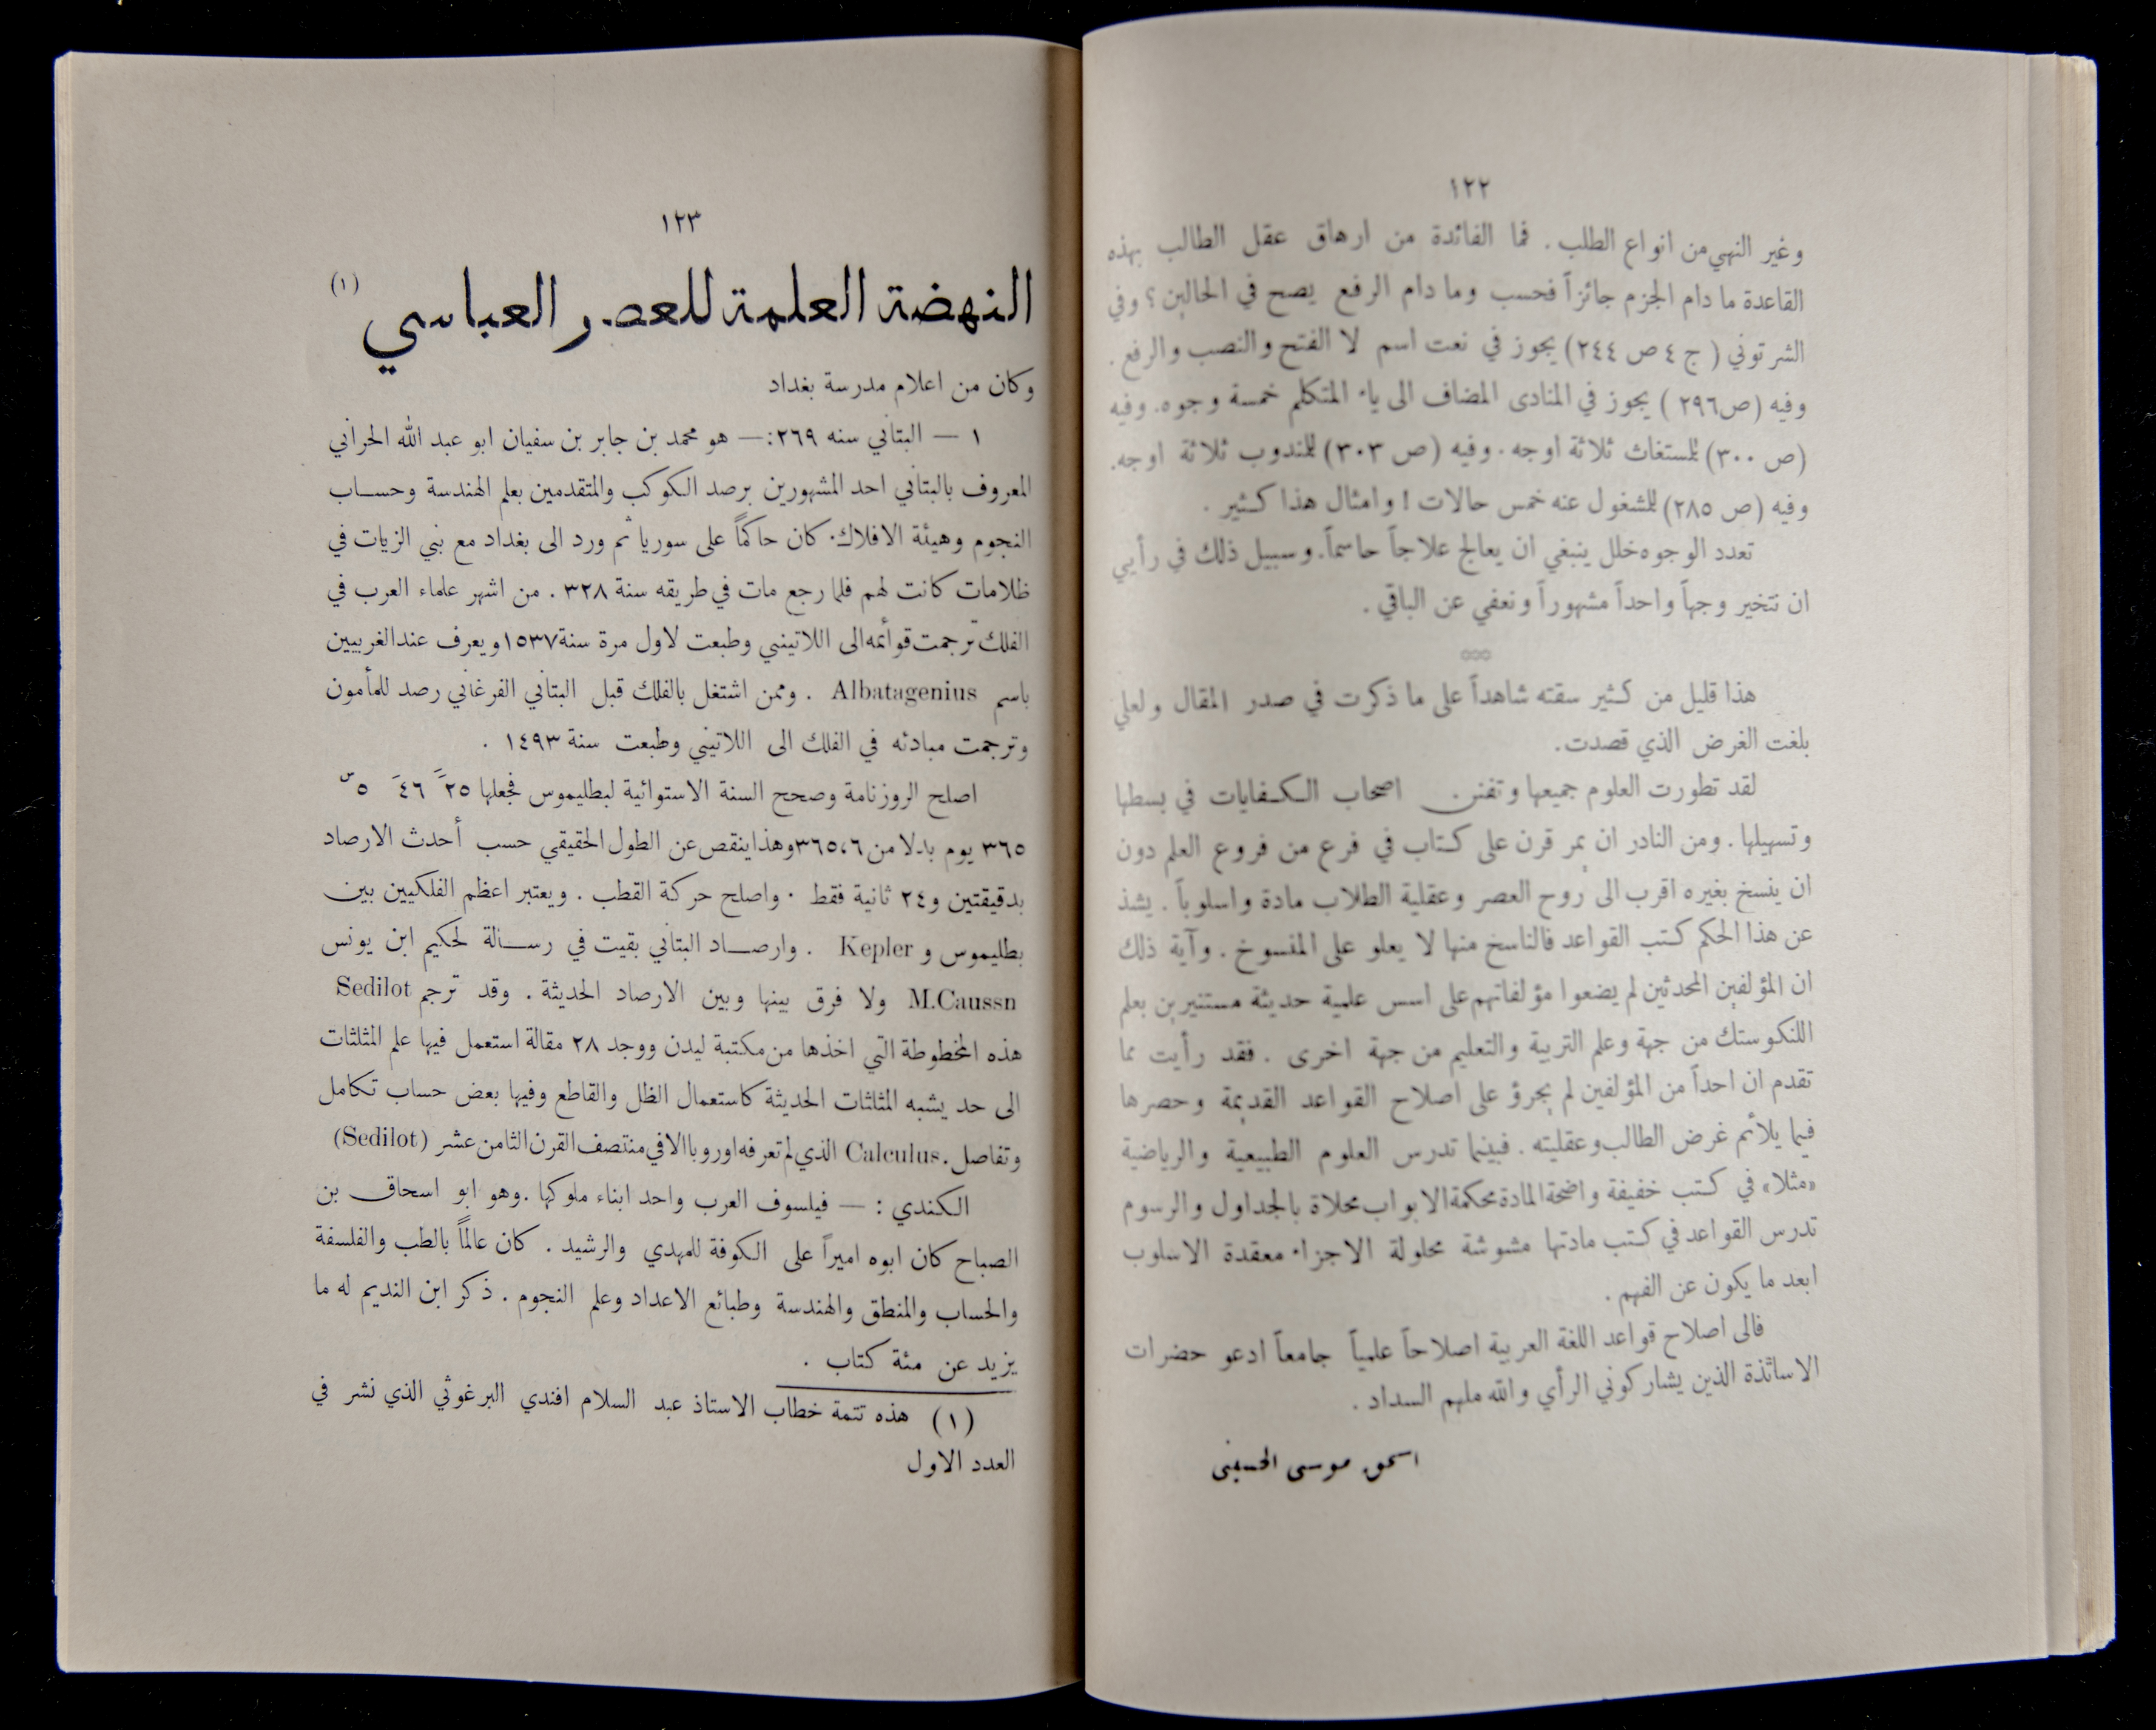 ١٢٢
وغير النهي من انواع الطلب . فما الفائدة من ارهاق عقل الطالب بهذه
القاعدة ما دام الجزم جائزاً فحسب وما دام الرفع يصح في الحالين ؟ وفي
الشرتوني ( ج ٤ ص ٢٤٤) يجوز في نعت اسم لا الفتح والنصب والرفع .
وفيه (ص ٢٩٦ ) يجوز في المنادى المضاف الى ياء المتكلم خمسة وجوه. وفيه
(ص ٣٠٠) للمستغاث ثلاثة اوجه . وفيه (ص ٣٠٣) للمندوب ثلاثة اوجه.
وفيه (ص ٢٨٥) للمشغول عنه خمس حالات ! وامثال هذا كثير .
تعدد الوجوه خلل ينبغي ان يعالج علاجاً حاسماً. وسبيل ذلك في رأيي
ان نتخير وجهاً واحداً مشهوراً ونعفي عن الباقي .
هذا قليل من كثير سقته شاهداً على ما ذكرت في صدر المقال ولعلي
بلغت الغرض الذي قصدت.
لقد تطورت العلوم جميعها وتفنن اصحاب الكفايات في بسطها
وتسهيلها . ومن النادر ان يمر قرن على كتاب في فرع من فروع العلم دون
ان ينسخ بغيره اقرب الى روح العصر وعقلية الطلاب مادة واسلوباً . يشذ
عن هذا الحكم كتب القواعد فالناسخ منها لا يعلو على المنسوخ . وآية ذلك
ان المؤلفين المحدثين لم يضعوا مؤلفاتهم على اسس علمية حديثة مستنيرين بعلم
اللنكوستك من جهة وعلم التربية والتعليم من جهة اخرى . فقد رأيت مما
تقدم ان احداً من المؤلفين لم يجرؤ على اصلاح القواعد القديمة وحصرها
فيما يلائم غرض الطالب وعقليته . فبينما تدرس العلوم الطبيعية والرياضية
«مثلا» في كتب خفيفة واضحة المادة محكمة الابواب محلاة بالجداول والرسوم
تدرس القواعد في كتب مادتها مشوشة محلولة الاجزاء معقدة الاسلوب
ابعد ما يكون عن الفهم .
فالى اصلاح قواعد اللغة العربية اصلاحاً علمياً جامعاً ادعو حضرات
الاساتذة الذين يشاركوني الرأي والله ملهم السداد .
اسحق موسى الحسيني
١٢٣
النهضة العلمية للعصر العباسي (١)
وكان من اعلام مدرسة بغداد
١ — البتاني سنه ٢٦٩: — هو محمد بن جابر بن سفيان ابو عبد الله الحراني
المعروف بالبتاني احد المشهورين برصد الكوكب والمتقدمين بعلم الهندسة وحساب
النجوم وهيئة الافلاك. كان حاكماً على سوريا ثم ورد الى بغداد مع بني الزيات في
ظلامات كانت لهم فلما رجع مات في طريقه سنة ٣٢٨ . من اشهر علماء العرب في
الفلك ترجمت قوائمه الى اللاتيني وطبعت لاول مرة سنة ١٥٣٧ ويعرف عند الغربيين
باسم Albatagenius . وممن اشتغل بالفلك قبل البتاني الفرغاني رصد للمأمون
وترجمت مبادئه في الفلك الى اللاتيني وطبعت سنة ١٤٩٣ .
اصلح الروزنامة وصحح السنة الاستوائية لبطليموس فجعلها ٢٥ً ٤٦َ ٥س
٣٦٥ يوم بدلا من ٣٦٥،٦ وهذا ينقص عن الطول الحقيقي حسب أحدث الارصاد
بدقيقتين و٢٤ ثانية فقط . واصلح حركة القطب . ويعتبر اعظم الفلكيين بين
بطليموس و Kepler . وارصاد البتاني بقيت في رسالة لحكيم ابن يونس
M.Caussn ولا فرق بينها وبين الارصاد الحديثة . وقد ترجم Sedilot
هذه المخطوطة التي اخذها من مكتبة ليدن ووجد ٢٨ مقالة استعمل فيها علم المثلثات
الى حد يشبه المثلثات الحديثة كاستعمال الظل والقاطع وفيها بعض حساب تكامل
وتفاصل . Calculus الذي لم تعرفه اوروبا الا في منتصف القرن الثامن عشر (Sedilot)
الكندي : — فيلسوف العرب واحد ابناء ملوكها . وهو ابو اسحاق بن
الصباح كان ابوه اميراً على الكوفة للمهدي والرشيد . كان عالماً بالطب والفلسفة
والحساب والمنطق والهندسة وطبائع الاعداد وعلم النجوم . ذكر ابن النديم له ما
يزيد عن مئة كتاب .
(١) هذه تتمة خطاب الاستاذ عبد السلام افندي البرغوثي الذي نشر في
العدد الاول